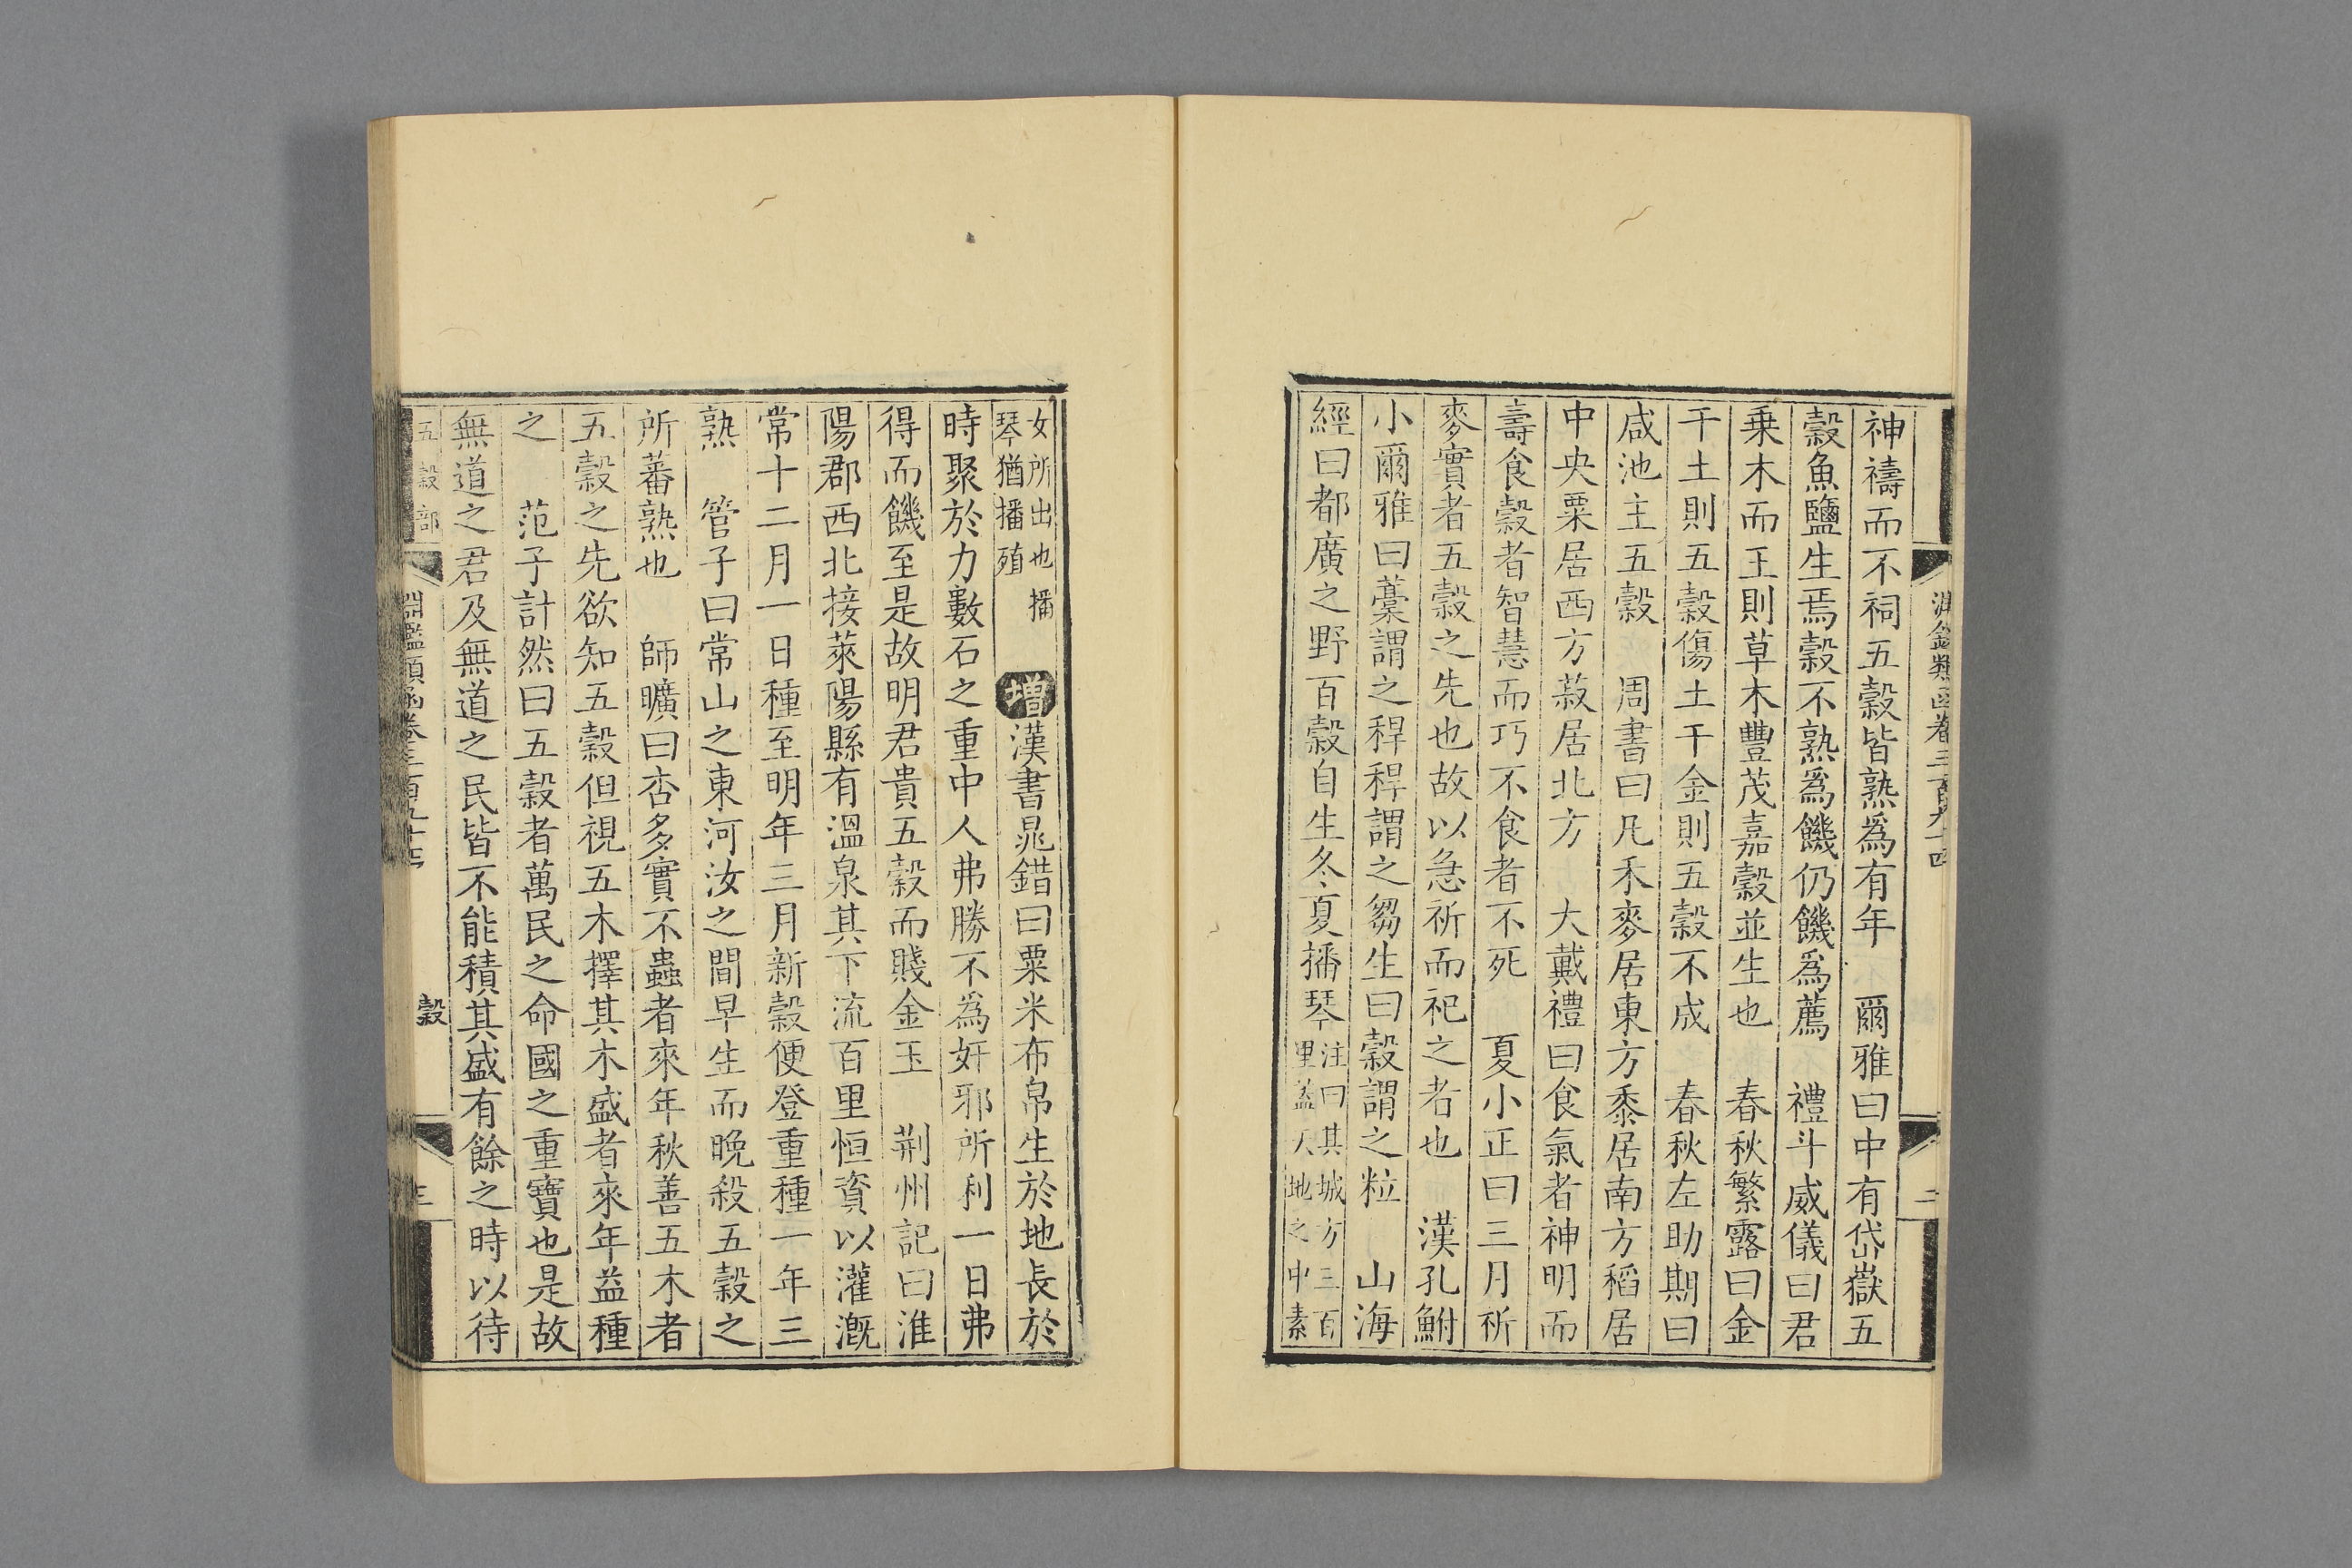 淵鑑類函卷三百九十四
二
神禱而不祠五穀皆熟爲有年　爾雅曰中有岱嶽五
穀魚鹽生焉穀不熟爲饑仍饑爲薦　禮斗威儀曰君
乗木而王則草木豐茂嘉穀並生也　春秋繁露曰金
干土則五穀傷土干金則五穀不成　春秋左助期曰
咸池主五穀　周書曰凡禾麥居東方黍居南方稻居
中央粟居西方菽居北方　大戴禮曰食氣者神明而
壽食穀者智慧而巧不食者不死　夏小正曰三月祈
麥實者五穀之先也故以急祈而祀之者也　漢孔鮒
小爾雅曰藁謂之稈稈謂之芻生曰穀謂之粒　山海
經曰都廣之野百穀自生冬夏播琴注曰其城方三百里蓋天地之中素
女所出也播琴猶播殖　增漢書晁錯曰粟米布帛生於地長於
時聚於力數石之重中人弗勝不為奸邪所利一日弗
得而饑至是故明君貴五穀而賤金玉　荆州記曰淮
陽郡西北接萊陽縣有溫泉其下流百里恒資以灌溉
常十二月一日種至明年三月新穀便登重種一年三
熟　管子曰常山之東河汝之間早生而晚殺五穀之
所蕃熟也　師曠曰杏多實不蟲者來年秋善五木者
五穀之先欲知五穀但視五木擇其木盛者來年益種
之　范子計然曰五穀者萬民之命國之重寶也是故
無道之君及無道之民皆不能積其盛有餘之時以待
五穀部
淵鑑類函卷三百九十四
穀
三